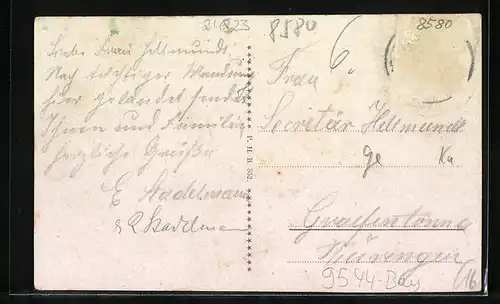 21823
8580
8580
Liebe Frau Hellmundt!
Nach tüchtiger Wanderung
hier gelandet sendet
Ihnen und Familie
herzliche Grüße
E Stadelmann
& R. Stadelmann
P. H. B. 352.
6.
Frau
Secretär Hellmundt
Ge Ka
Gräfentonna
Thüringen
9544-Bay